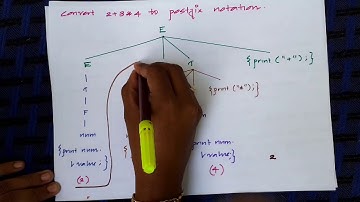 convert 2+3*4 to postfix notation.
E
E T {print("+");}
T {print("*");}
F
num num
{print num. print num.
lvalue;} lvalue;}
(2) (4) 2